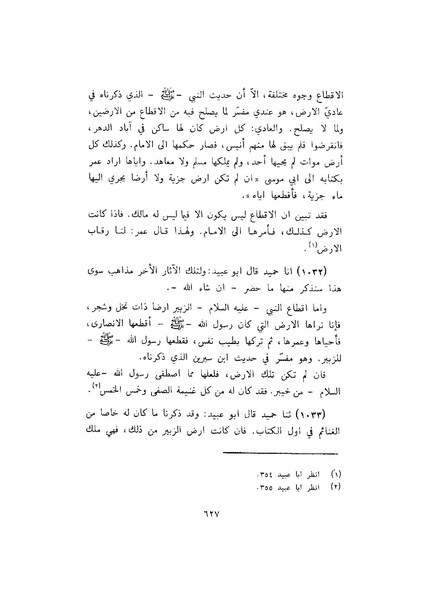 الاقطاع وجوه مختلفة، الاّ أن حديث النبي - ﷺ - الذي ذكرناه في
عاديّ الارض، هو عندي مفسّر لما يصلح فيه من الاقطاع من الارضين،
ولما لا يصلح. والعادي: كل ارض كان لها ساكن في آباد الدهر،
فانقرضوا فلم يبق لها منهم أنيس، فصار حكمها الى الامام. وكذلك كل
أرض موات لم يحيها أحد، ولم يملكها مسلم ولا معاهد. واياها اراد عمر
بكتابه الى أبي موسى «ان لم تكن ارض جزية ولا أرضا يجري اليها
ماء جزية، فأقطعها اياه».
فقد تبين ان الاقطاع ليس يكون الا فيا ليس له مالك. فاذا كانت
الارض كذلك، فأمرها الى الامام. ولهذا قال عمر: لنا رقاب
الارض(١).
(١٠٣٢) انا حميد قال ابو عبيد: ولتلك الآثار الأخر مذاهب سوى
هذا سنذكر منها ما حضر - ان شاء الله -.
واما اقطاع النبي - عليه السلام - الزبير ارضا ذات نخل وشجر،
فإنا نراها الارض التي كان رسول الله - ﷺ - أقطعها الانصارى،
فأحياها وعمرها، ثم تركها بطيب نفس، فقطعها رسول الله - ﷺ -
للزبير. وهو مفسّر في حديث ابن سيرين الذي ذكرناه.
فان لم تكن تلك الارض، فلعلها مما اصطفى رسول الله - عليه
السلام - من خيبر. فقد كان له من كل غنيمة الصفى وخمس الخمس(٢).
(١٠٣٣) ثنا حميد قال ابو عبيد: وقد ذكرنا ما كان له خاصا من
الغنائم في اول الكتاب. فان كانت ارض الزبير من ذلك، فهي ملك
(١) انظر ابا عبيد ٣٥٤.
(٢) انظر ابا عبيد ٣٥٥.
٦٢٧